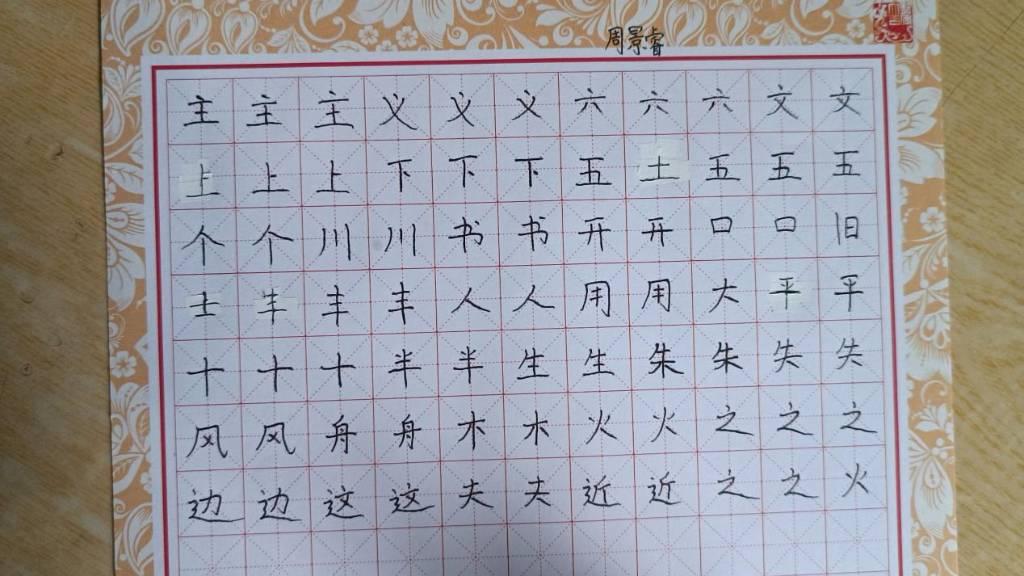 周景睿
主主主义义义六六六文文
上上上下下下五土五五五
个个川川书书开开口口旧
士丰丰丰人人用用大平平
十十十半半生生朱朱失失
风风舟舟木木火火之之之
边边这这夫夫近近之之火